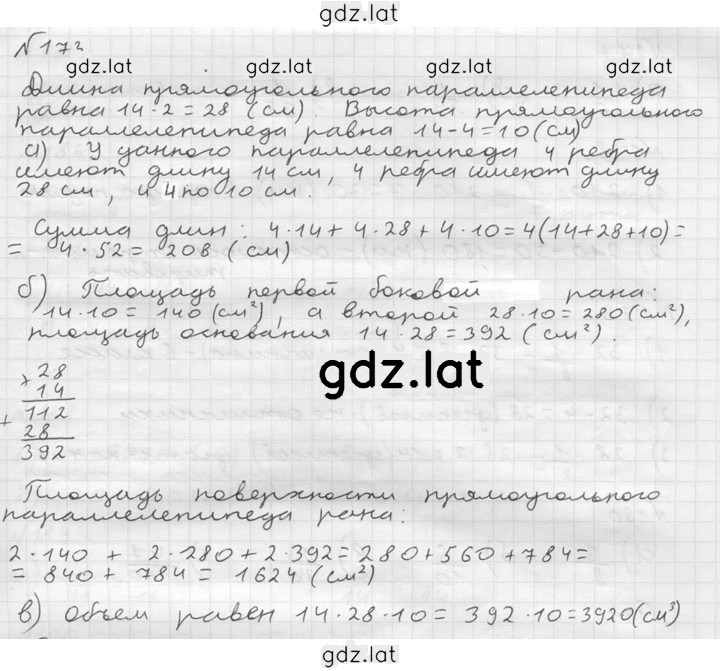 gdz.lat
№173
gdz.lat gdz.lat
Длина прямоугольного параллелепипеда
равна 14·2=28 (см). Высота прямоугольного
параллелепипеда равна 14-4=10(см)
а) У данного параллелепипеда 4 ребра
имеют длину 14 см, 4 ребра имеют длину
28 см, и 4 по 10 см.
Сумма длин: 4·14+4·28+4·10=4(14+28+10)=
= 4·52= 208(см)
gdz.lat gdz.lat
б) Площадь первой боковой рана:
14·10= 140(см²), а второй 28·10=280(см²),
площадь основания 14·28=392 (см²).
× 28
14
gdz.lat
+ 112
28
392
Площадь поверхности прямоугольного
параллелепипеда рана:
gdz.lat gdz.lat
2·140 + 2·280+2·392=280+560+784=
= 840+ 784= 1624(см²)
в) Объем равен 14·28·10= 392·10=3920(см³)
gdz.lat